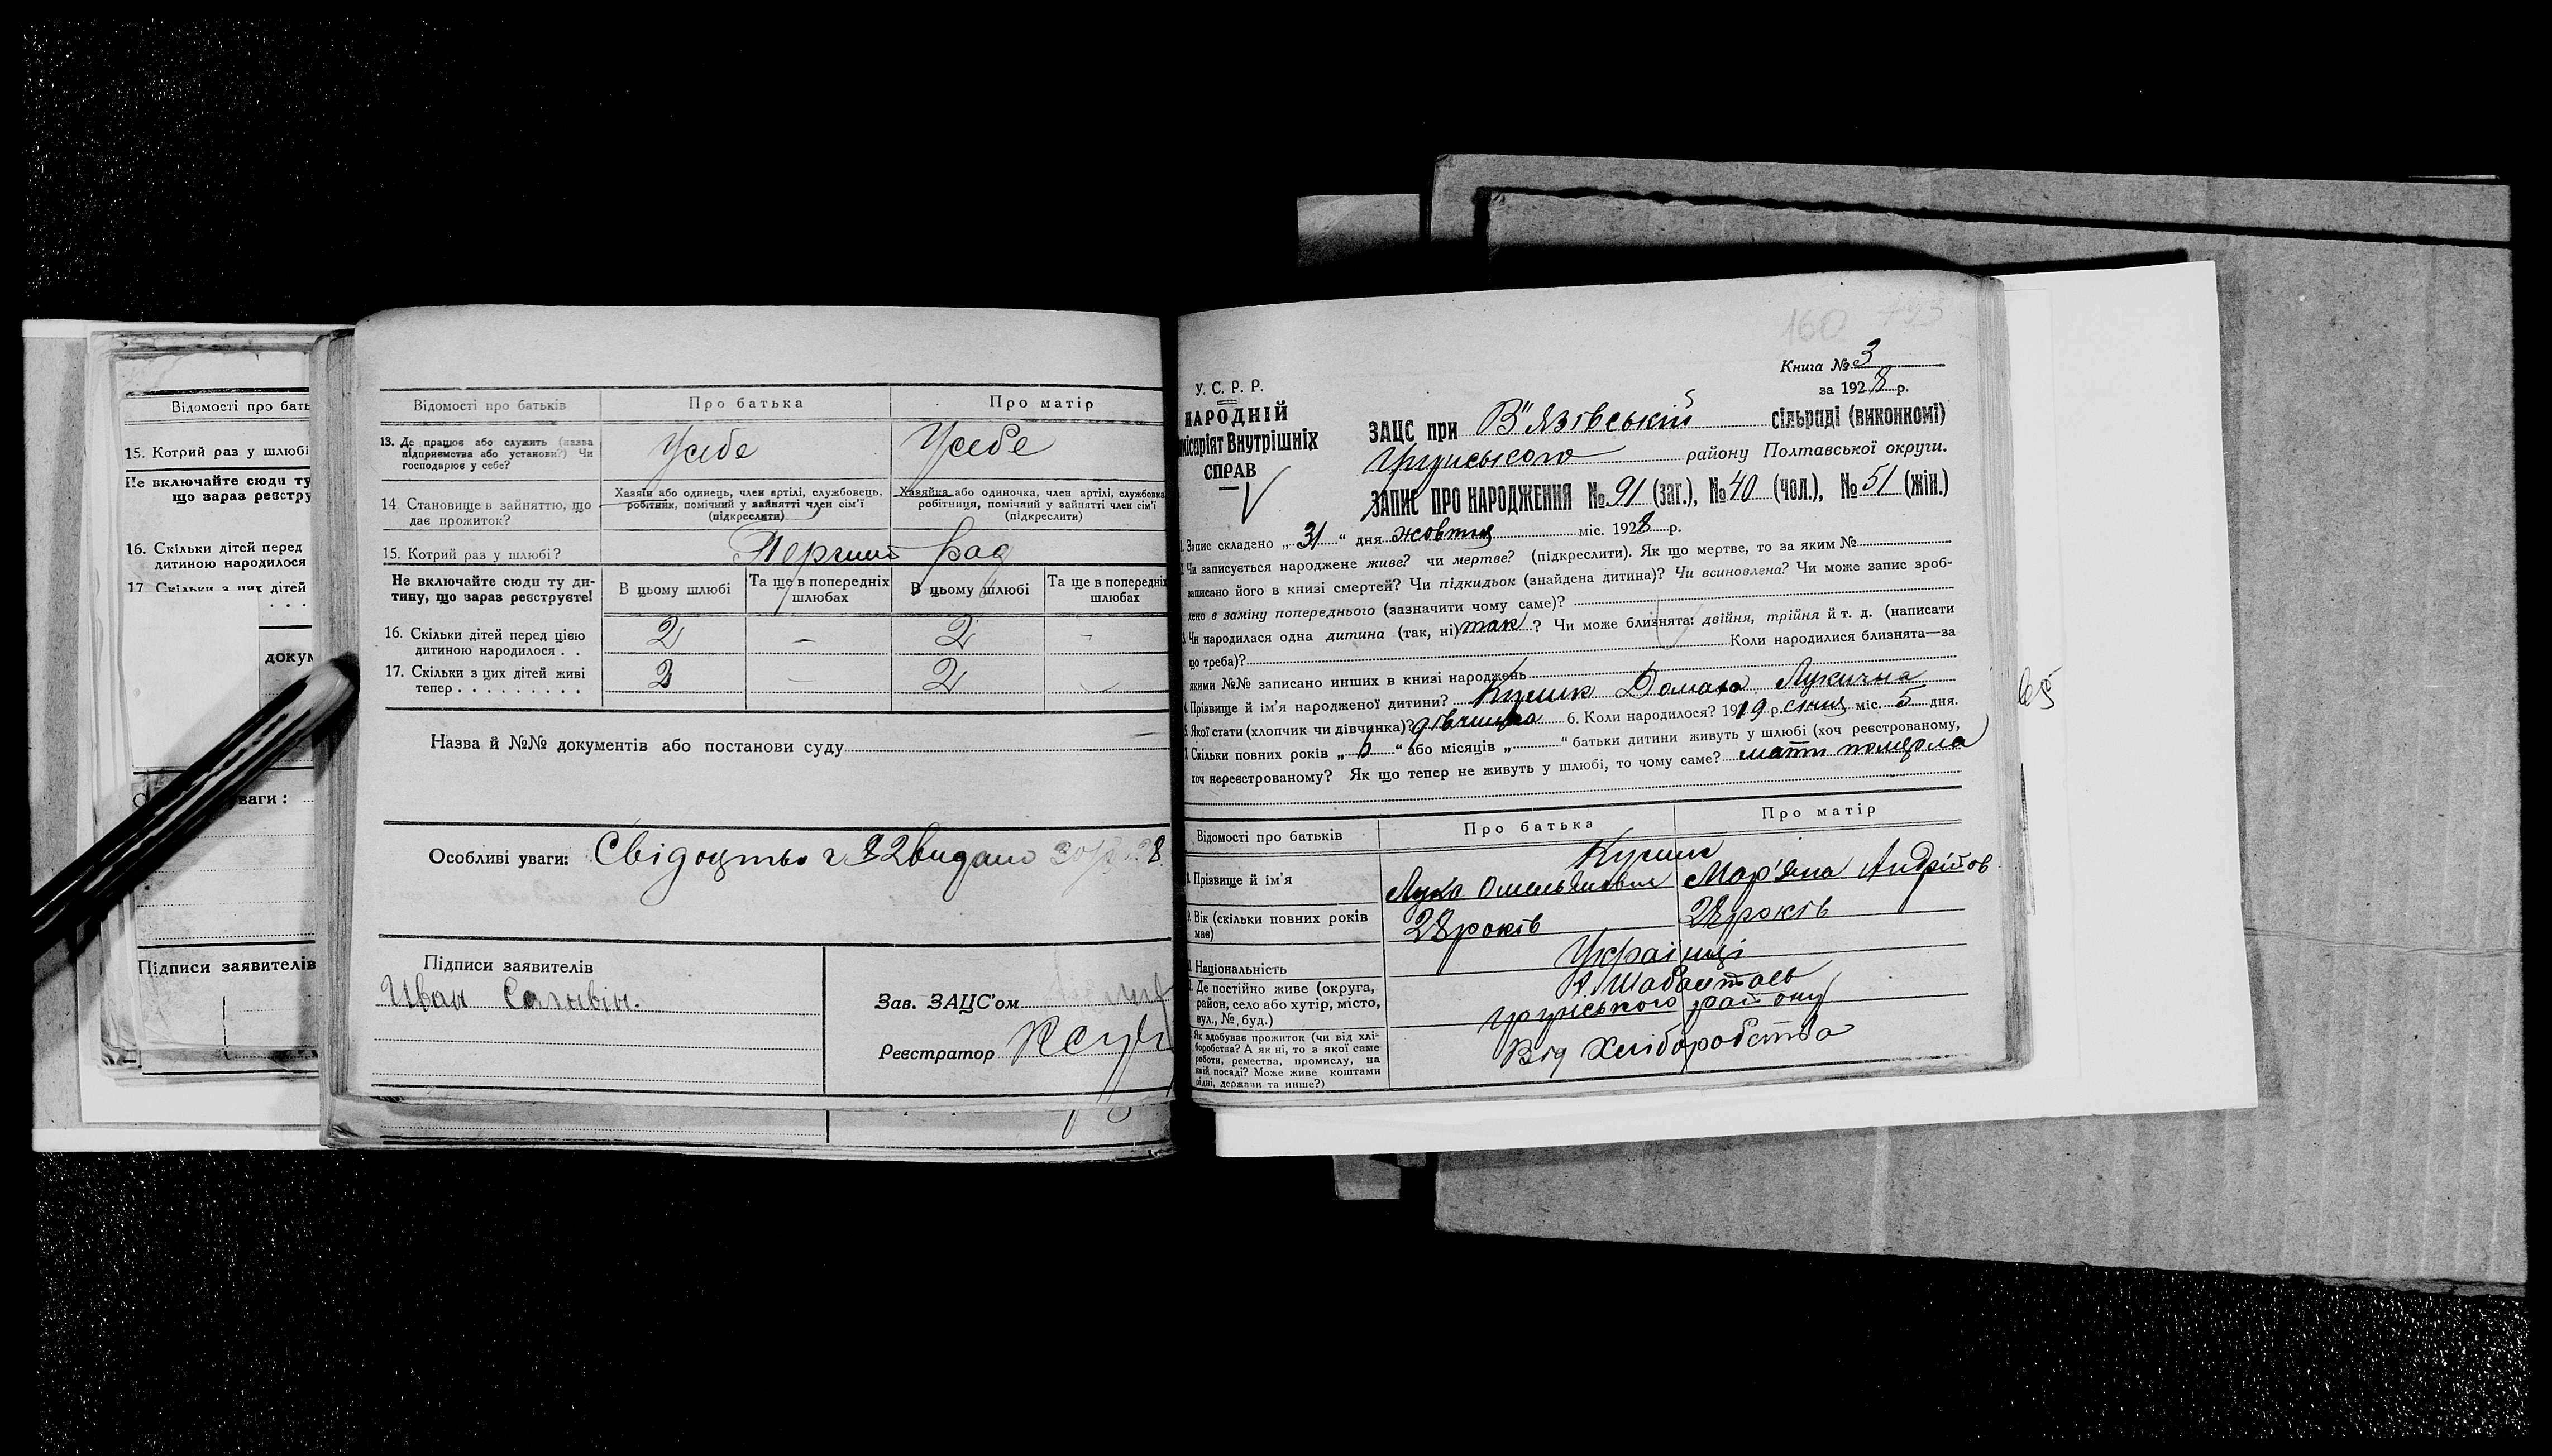 Відомості про бать
15. Котрий раз у шлюбі
Не включайте сюди ту
що зараз реєстру
16. Скільки дітей перед
дитиною народилося
17. Скільки з цих дітей
докум
ваги:
Підписи заявителів
Відомості про батьків
Про батька
Про матір
13. Де працює або служить (назва
підприємства або установи?) Чи
господарює у себе?
Усебе
Усебе
14 Становище в зайняттю, що
дає прожиток?
Хазяїн або одинець, член артілі, службовець,
робітник, помічний у зайнятті член сім'ї
(підкреслити)
Хазяйка або одиночка, член артілі, службовка
робітниця, помічний у зайнятті член сім'ї
(підкреслити)
15. Котрий раз у шлюбі?
Перший раз
Не включайте сюди ту ди-
тину, що зараз реєструєте!
В цьому шлюбі
Та ще в попередніх
шлюбах
В цьому шлюбі
Та ще в попередніх
шлюбах
16. Скільки дітей перед цією
дитиною народилося . .
2 – 2 -
17. Скільки з цих дітей живі
тепер . . . . . . . . .
2 – 2 -
Назва й №№ документів або постанови суду
Особливі уваги: Свідоцтво 82 видано
Підписи заявителів
Иван
Зав. ЗАЦС'ом
Реєстратор
160
Книга № 3
за 1928 р.
У. С. Р. Р.
НАРОДНІЙ
місаріят Внутрішніх
СПРАВ
ЗАЦС при В"язівській сільраді (виконкомі)
району Полтавської округи.
ЗАПИС ПРО НАРОДЖЕННЯ № 91 (заг.), № 40 (чол.), № 51 (жін.)
1. Запис складено „31“ дня жовтня міс. 1928 р.
2. Чи записується народжене живе? чи мертве? (підкреслити). Як що мертве, то за яким №
записано його в книзі смертей? Чи підкидьок (знайдена дитина)? Чи всиновлена? Чи може запис зроб-
лено в заміну попереднього (зазначити чому саме)?
3. Чи народилася одна дитина (так, ні) так? Чи може близнята: двійня, трійня й т. д. (написати
що треба)? Коли народилися близнята—за
якими №№ записано инших в книзі народжень
4. Прізвище й ім'я народженої дитини? Кущик Домаха Лукична
5. Якої стати (хлопчик чи дівчинка)? дівчинка 6. Коли народилося? 1919 р. січня міс. 5 дня.
7. Скільки повних років „ “ або місяців „ “ батьки дитини живуть у шлюбі (хоч реєстрованому,
хоч нереєстрованому? Як що тепер не живуть у шлюбі, то чому саме? мати померла
Відомості про батьків
Про батька
Про матір
8. Прізвище й ім'я
Кущик
Лука Омелянович
Мар'яна Андрійов
9. Вік (скільки повних років
має)
28 років
28 років
10. Національність
Українці
11. Де постійно живе (округа,
район, село або хутір, місто,
вул., №, буд.)
району
12. Як здобуває прожиток (чи від хлі-
боробства? А як ні, то з якої саме
роботи, ремества, промислу, на
якій посаді? Може живе коштами
рідні, держави та инше?)
Від Хліборобства